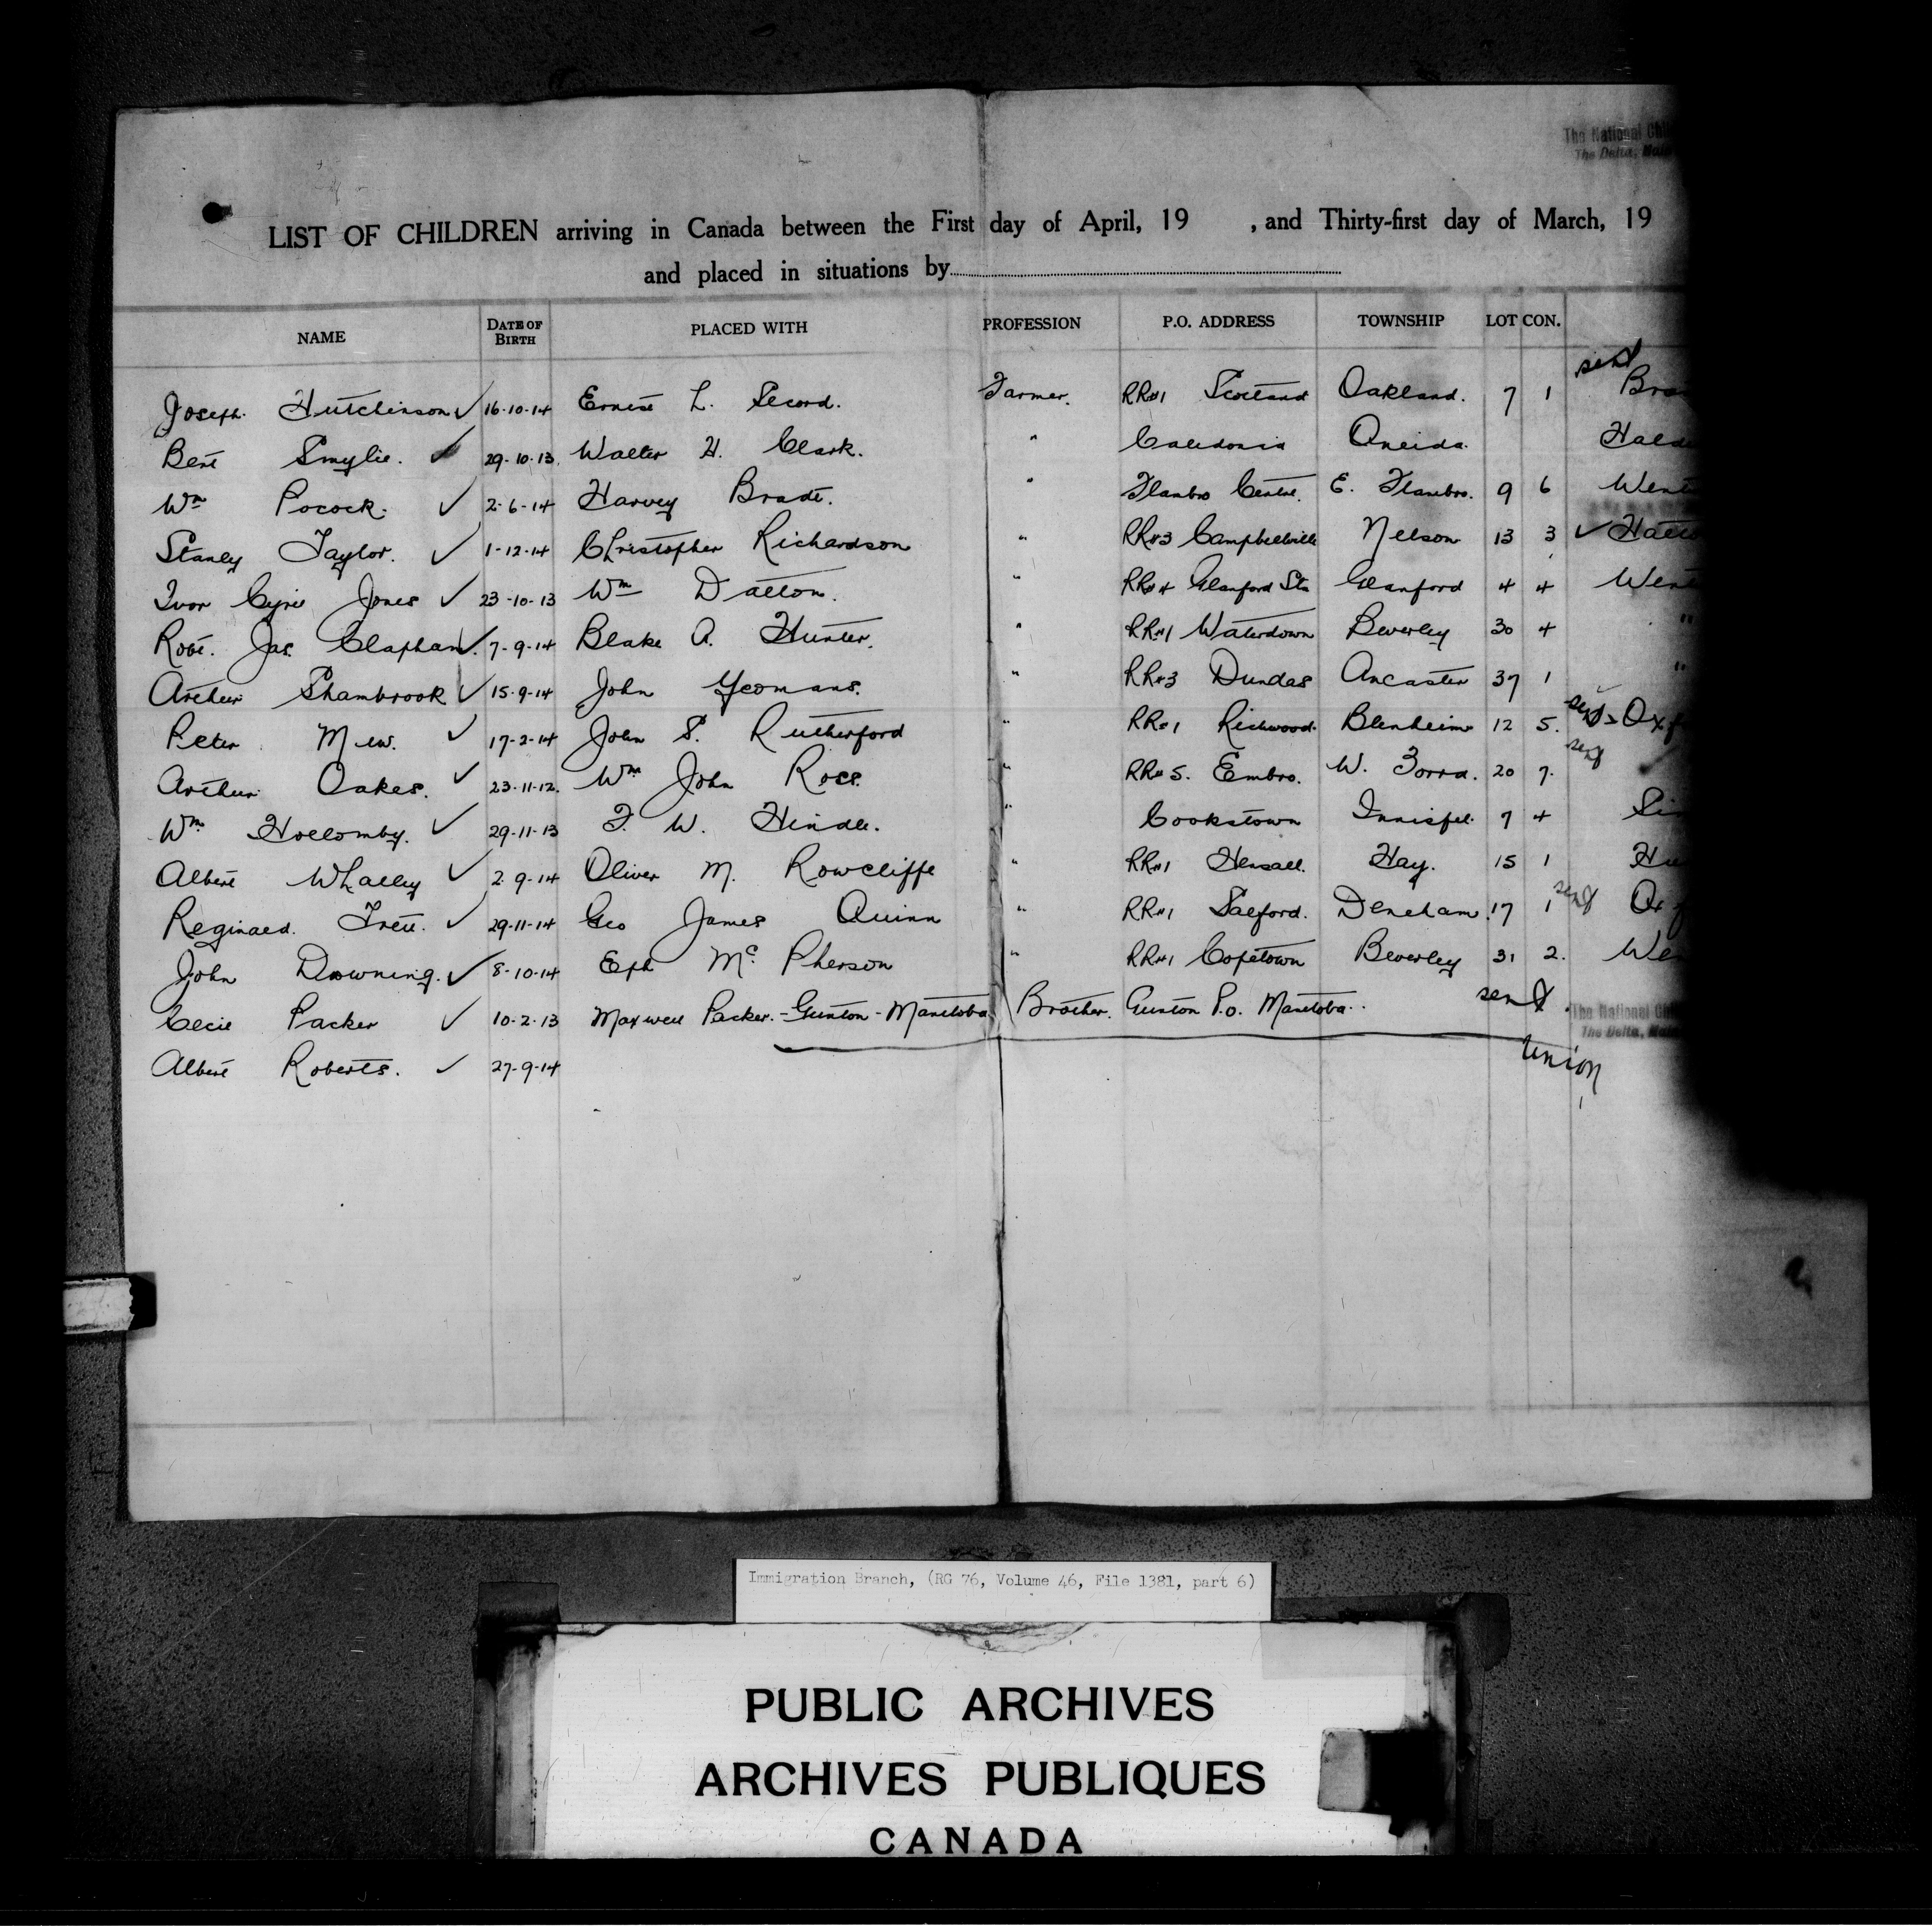 The National Chil
The Delta, Ham
LIST OF CHILDREN arriving in Canada between the First day of April, 19 , and Thirty-first day of March, 19
and placed in situations by
NAME DATE OF BIRTH PLACED WITH PROFESSION P.O. ADDRESS TOWNSHIP LOT CON.
sent
Joseph. Hutchinson ✓ 16-10-14 Ernest L. Secord. Farmer. RR#1 Scotland Oakland. 7 1 Bra
Bert Smylie. ✓ 29-10-13. Walter H. Clark. " Caledonia Oneida. Hald
Wm Pocock. ✓ 2-6-14 Harvey Bradt. " Flambro Centre. E. Flambro. 9 6 Went
Stanley Taylor. ✓ 1-12-14 Christopher Richardson " RR#3 Campbellville Nelson 13 3 ✓ Halto
Ivor Cyril Jones ✓ 23-10-13 Wm Dalton. " RR#4 Glanford Sta Glanford 4 4 Went
Robt. Jas. Clapham ✓ 7-9-14 Blake A. Hunter. " RR#1 Waterdown Beverley 30 4 "
Arthur Shambrook ✓ 15-9-14 John Yeomans. " RR#3 Dundas Ancaster 37 1 "
Peter Mew. ✓ 17-2-14 John S. Rutherford " RR#1 Richwood. Blenheim 12 5. sent Oxf
Arthur Oakes. ✓ 23-11-12. Wm John Ross. " RR#5. Embro. W. Zorra. 20 7. sent
Wm Hollomby. ✓ 29-11-13 F. W. Hindle. " Cookstown Innisfil. 7 4 Si
Albert Whalley ✓ 2-9-14 Oliver M. Rowcliffe " RR#1 Hensall. Hay. 15 1 Hu
Reginald. Trett. ✓ 29-11-14 Geo James Quinn " RR#1 Salford. Dereham. 17 1 sent Oxf
John Downing. ✓ 8-10-14 Eph McPherson " RR#1 Copetown Beverley 31 2. Wen
Cecil Packer ✓ 10-2-13 Maxwell Packer. - Gunton - Manitoba Brother. Gunton P.O. Manitoba. sent
The National Chil
The Delta, Ham
Albert Roberts. ✓ 27-9-14 Union
Immigration Branch, (RG 76, Volume 46, File 1381, part 6)
PUBLIC ARCHIVES
ARCHIVES PUBLIQUES
CANADA